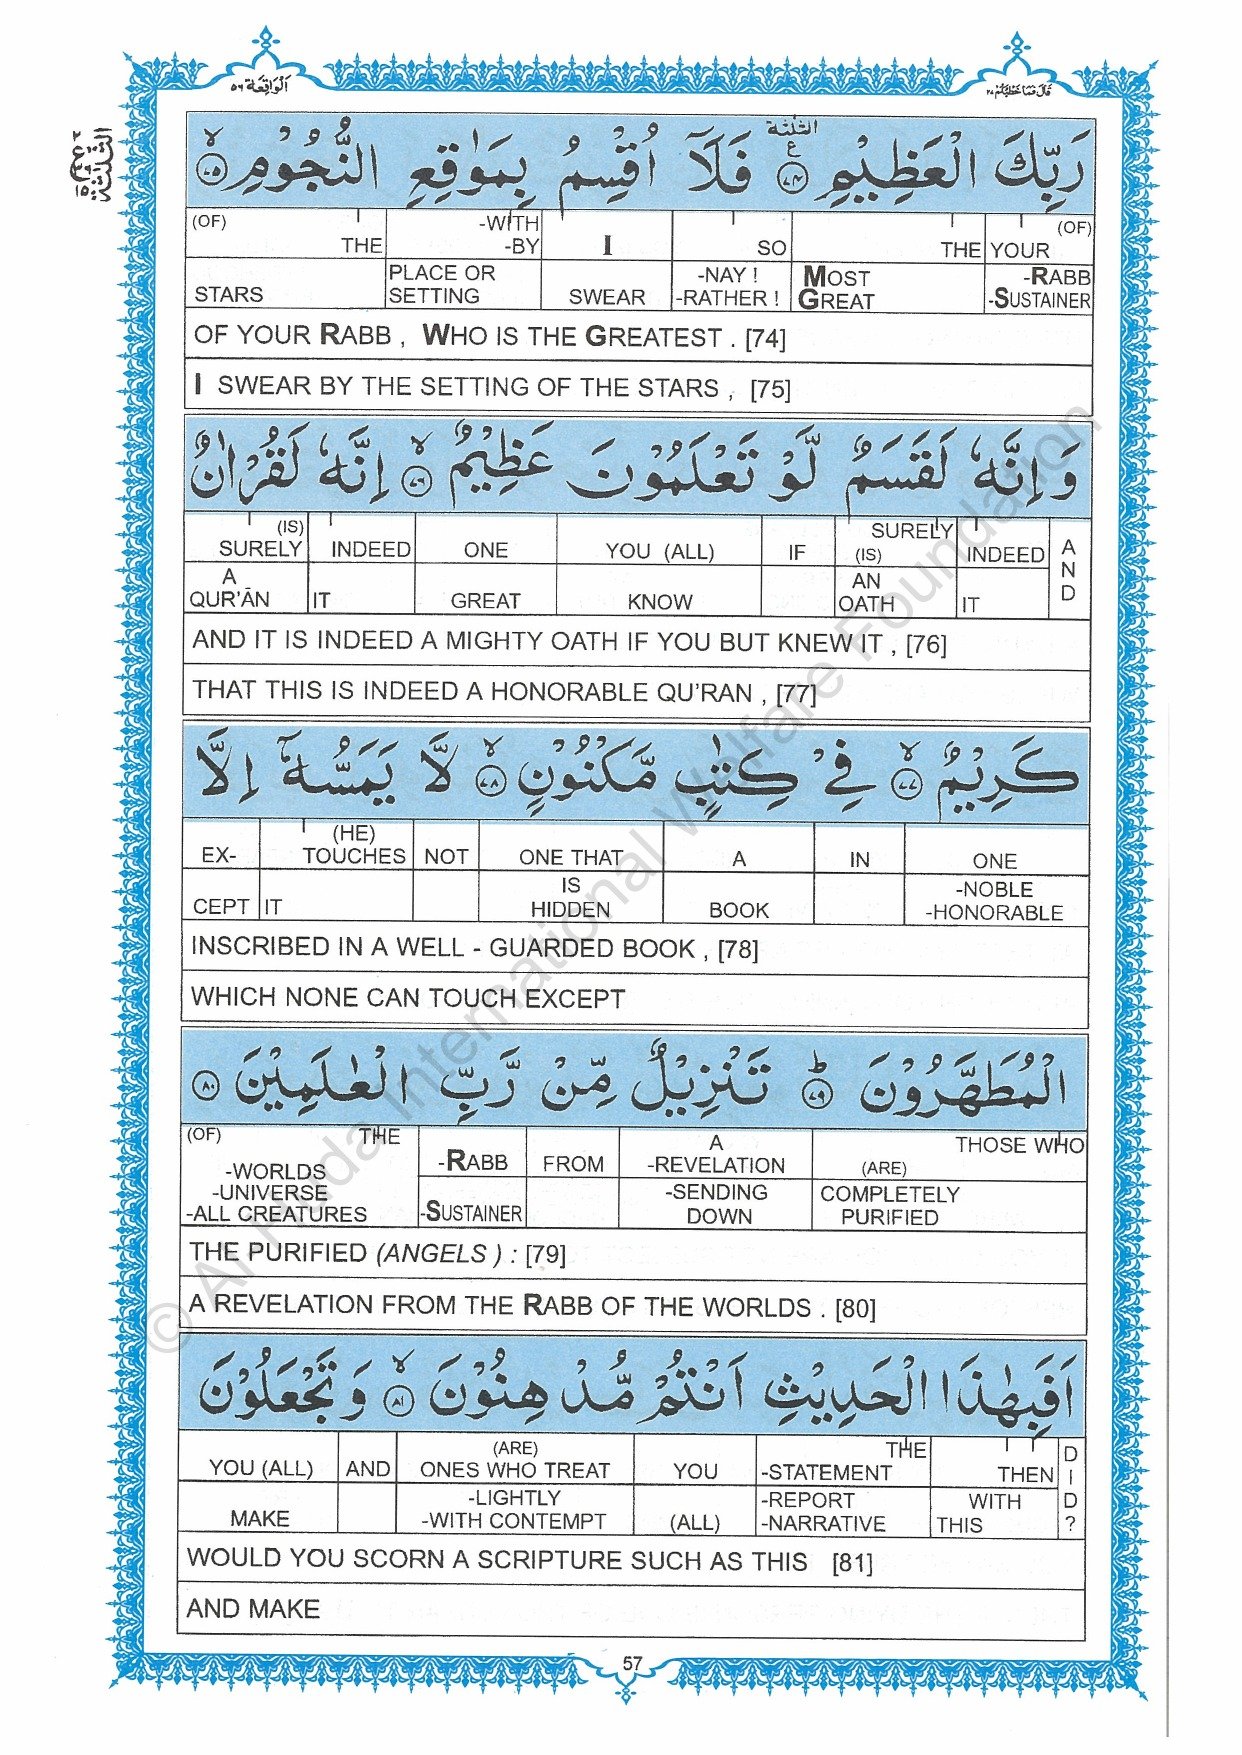 اَلْوَاقِعَة ٥٦
قَالَ فَمَا خَطْبُكُمْ ٢٧
رَبِّكَ الْعَظِيْمِ ٧٤ الثلثة ع فَلَآ اُقْسِمُ بِمَوٰقِعِ النُّجُوْمِ ۙ ٧٥
(OF) THE -WITH -BY I SO THE YOUR (OF)
STARS PLACE OR SETTING SWEAR -NAY ! -RATHER ! MOST GREAT -RABB -SUSTAINER
OF YOUR RABB , WHO IS THE GREATEST . [74]
I SWEAR BY THE SETTING OF THE STARS , [75]
وَ اِنَّهٗ لَقَسَمٌ لَّوْ تَعْلَمُوْنَ عَظِيْمٌ ۙ ٧٦ اِنَّهٗ لَقُرْاٰنٌ
(IS) SURELY INDEED ONE YOU (ALL) IF SURELY (IS) INDEED AND
A QUR'ĀN IT GREAT KNOW AN OATH IT
AND IT IS INDEED A MIGHTY OATH IF YOU BUT KNEW IT , [76]
THAT THIS IS INDEED A HONORABLE QU'RAN , [77]
كَرِيْمٌ ۙ ٧٧ فِيْ كِتٰبٍ مَّكْنُوْنٍ ۙ ٧٨ لَّا يَمَسُّهٗٓ اِلَّا
EX- (HE) TOUCHES NOT ONE THAT A IN ONE
CEPT IT IS HIDDEN BOOK -NOBLE -HONORABLE
INSCRIBED IN A WELL - GUARDED BOOK , [78]
WHICH NONE CAN TOUCH EXCEPT
الْمُطَهَّرُوْنَ ؕ ٧٩ تَنْزِيْلٌ مِّنْ رَّبِّ الْعٰلَمِيْنَ ٨٠
(OF) THE -RABB FROM A -REVELATION THOSE WHO (ARE)
-WORLDS -UNIVERSE -ALL CREATURES -SUSTAINER -SENDING DOWN COMPLETELY PURIFIED
THE PURIFIED (ANGELS ) : [79]
A REVELATION FROM THE RABB OF THE WORLDS . [80]
اَفَبِهٰذَا الْحَدِيْثِ اَنْتُمْ مُّدْهِنُوْنَ ۙ ٨١ وَ تَجْعَلُوْنَ
YOU (ALL) AND (ARE) ONES WHO TREAT YOU THE -STATEMENT THEN DID?
MAKE -LIGHTLY -WITH CONTEMPT (ALL) -REPORT -NARRATIVE WITH THIS
WOULD YOU SCORN A SCRIPTURE SUCH AS THIS [81]
AND MAKE
57
© Al-Huda International Welfare Foundation